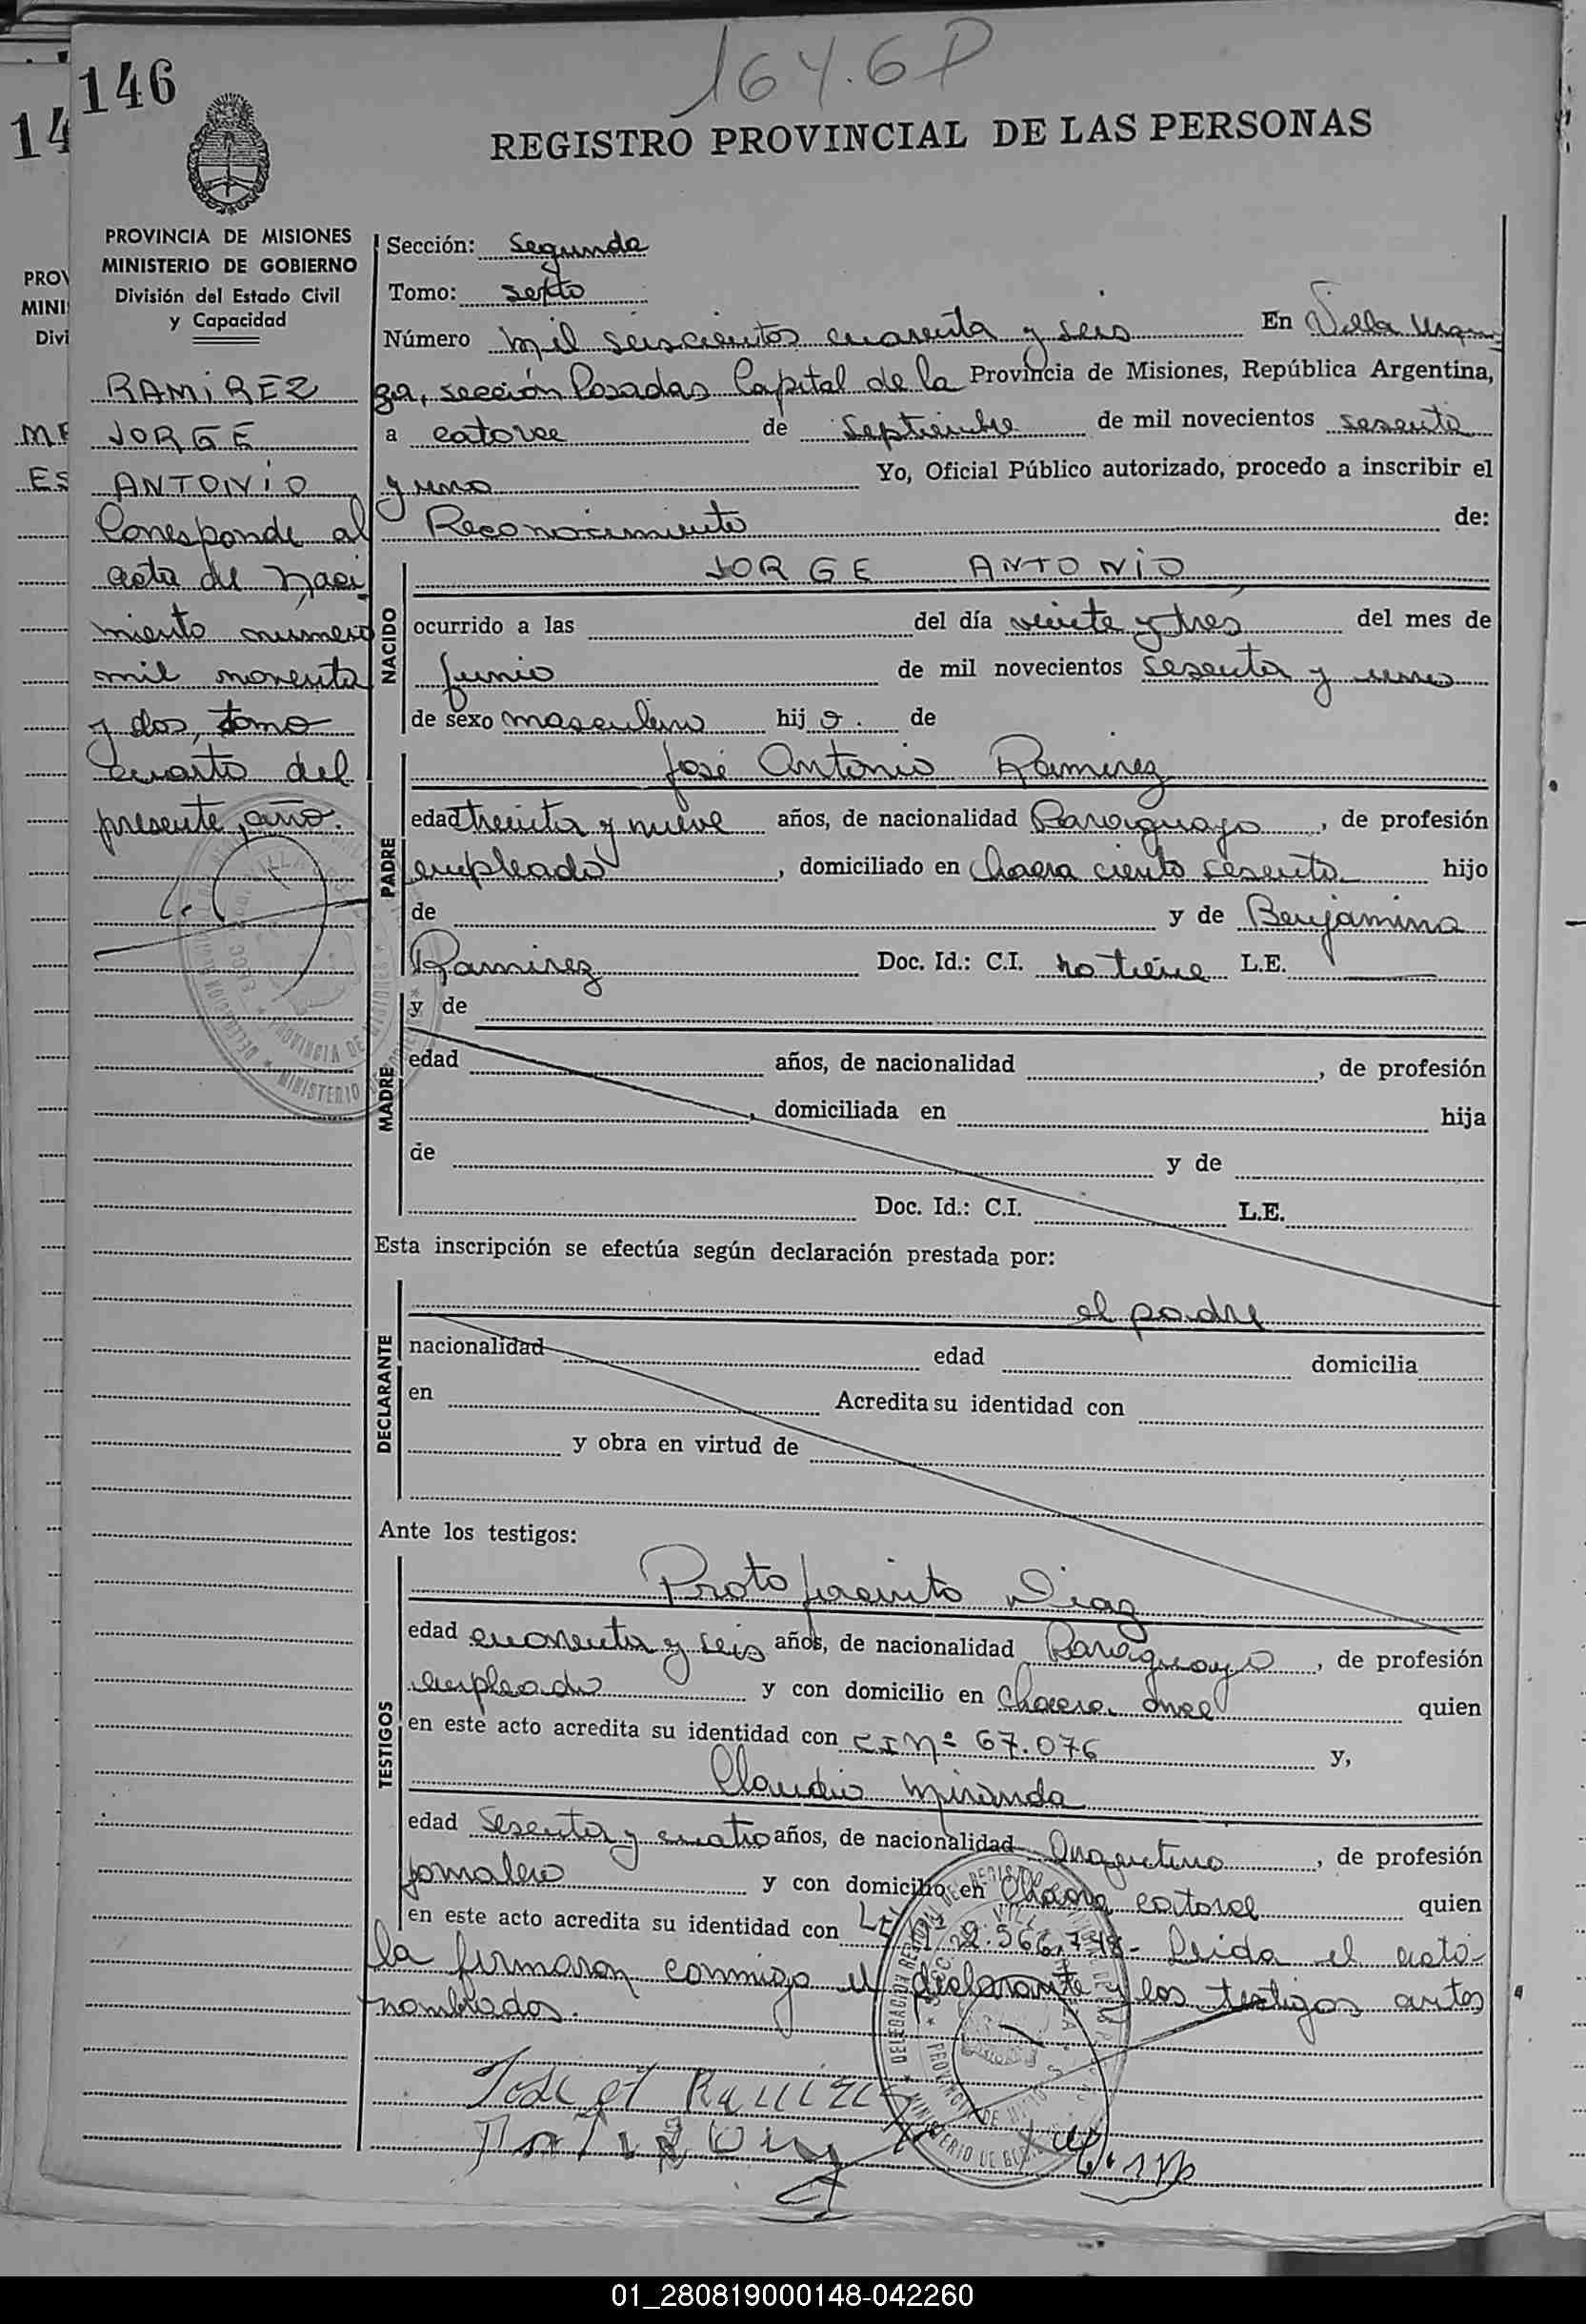 164.6P
146
14
REGISTRO PROVINCIAL DE LAS PERSONAS
PROVINCIA DE MISIONES
MINISTERIO DE GOBIERNO
División del Estado Civil
y Capacidad
PROV
MINI
Divi
RAMIREZ
JORGE
ANTONIO
Corresponde al
acta de naci
miento numero
mil noventa
y dos, tomo
cuarto del
presente año.
Sección: Segunda
Tomo: sexto
Número mil seiscientos cuarenta y seis En Villa Urqui
za, sección Posadas Capital de la Provincia de Misiones, República Argentina,
a catorce de Septiembre de mil novecientos sesenta
y uno Yo, Oficial Público autorizado, procedo a inscribir el
Reconocimiento de:
NACIDO
JORGE ANTONIO
ocurrido a las del día veinte y tres del mes de
Junio de mil novecientos sesenta y uno
de sexo masculino hijo. de
PADRE
José Antonio Ramirez
edad treinta y nueve años, de nacionalidad Paraguayo, de profesión
empleado, domiciliado en Chacra ciento sesenta hijo
de y de Benjamina
Ramirez Doc. Id.: C.I. no tiene L.E.
MADRE
y de
edad años, de nacionalidad , de profesión
, domiciliada en hija
de y de
Doc. Id.: C.I. L.E.
Esta inscripción se efectúa según declaración prestada por:
DECLARANTE
el padre
nacionalidad edad domicilia
en Acredita su identidad con
y obra en virtud de
Ante los testigos:
TESTIGOS
Proto Jacinto Diaz
edad cuarenta y seis años, de nacionalidad Paraguayo, de profesión
empleado y con domicilio en Chacra once quien
en este acto acredita su identidad con CI Nº 67.076 y,
Claudio Miranda
edad Sesenta y cuatro años, de nacionalidad Argentino, de profesión
jornalero y con domicilio en Chacra catorce quien
en este acto acredita su identidad con LE Nº 2.566.748- Leida el acta
la firmaron conmigo el declarante y los testigos antes
nombrados.
Jose A Ramirez
01_280819000148-042260